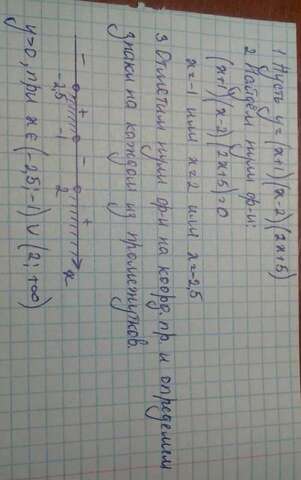 1 Пусть y = (x+1)(x-2)(2x+5)
2 Найдём нули ф-и:
(x+1)(x-2)(2x+5)=0
x=-1 или x=2 или x=-2,5
3 Отметим нули ф-и на коорд. пр и определим
знаки на каждом из промежутков.
- + - +
-2,5 -1 2 x
y>0, при x∈(-2,5;-1)∪(2;+∞)